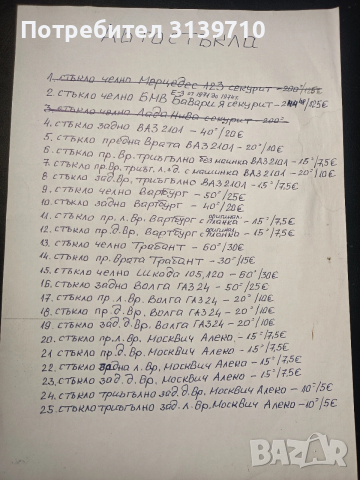 Потребител 3139710
Автостъкла
1. стъкло челно Мерцедес 123 секурит - 200°/115€
2. стъкло челно БМВ Бавария секурит - /125€
3. стъкло челно Лада Нива секурит - 200°
4. стъкло задно ВАЗ 2101 - 40°/20€
5. стъкло предна врата ВАЗ 2101 - 20°/10€
6. стъкло пр. Вр. триъгълно без машинка ВАЗ 2101 - 15°/7,5€
7. стъкло пр. Вр. триъг. л.+д. с машинка ВАЗ 2101 - 20°/10€
8. стъкло зад. Вр. триъгълно ВАЗ 2101 - 15°/7,5€
9. стъкло челно Вартбург - 50°/25€
10. стъкло задно Вартбург - 40°/20€
11. стъкло пр. л. Вр. Вартбург с оригинал. планка - 15°/7,5€
12. стъкло пр. д. Вр. Вартбург с оригинал. планка - 15°/7,5€
13. стъкло челно Трабант - 60°/30€
14. стъкло пр. Врата Трабант - 30°/15€
15. стъкло челно Шкода 105,120 - 60°/30€
16. стъкло задно Волга ГАЗ 24 - 50°/25€
17. стъкло пр. л. Вр. Волга ГАЗ 24 - 20°/10€
18. стъкло пр. д. Вр. Волга ГАЗ 24 - 20°/10€
19. стъкло зад. д. Вр. Волга ГАЗ 24 - 20°/10€
20. стъкло пр. л. Вр. Москвич Алеко - 15°/7,5€
21. стъкло пр. д. Вр. Москвич Алеко - 15°/7,5€
22. стъкло задно л. Вр. Москвич Алеко - 15°/7,5€
23. стъкло зад. д. Вр. Москвич Алеко - 15°/7,5€
24. стъкло триъгълно зад. д. Вр. Москвич Алеко - 10°/5€
25. стъкло триъгълно зад. л. Вр. Москвич Алеко - 10°/5€
BAZAR